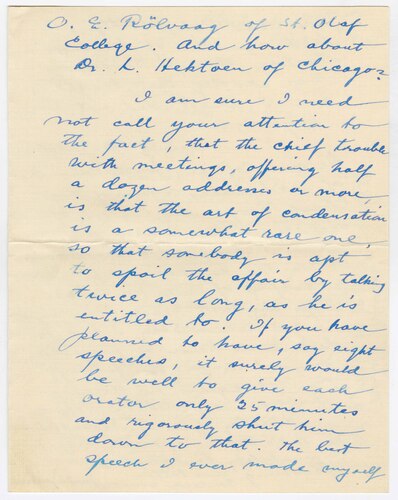 O. E. Rölvaag of St. Olaf
College. And how about
Dr. L. Hektoen of Chicago?
I am sure I need
not call your attention to
the fact, that the chief trouble
with meetings, offering half
a dozen addresses or more,
is that the art of condensation
is a somewhat rare one,
so that somebody is apt
to spoil the affair by talking
twice as long, as he is
entitled to. If you have
planned to have, say eight
speeches, it surely would
be well to give each
orator only 25 minutes
and rigorously shut him
down to that. The best
speech I ever made myself